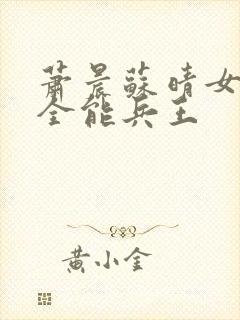 萧晨蘇晴女
全能兵王
黄小金